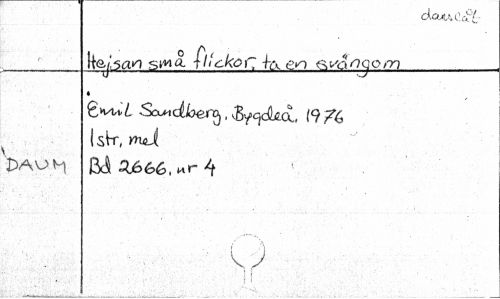 danslåt
Hejsan små flickor, ta en svängom
Emil Sandberg, Bygdeå, 1976
1 str, mel
DAUM
Bd 2666, nr 4